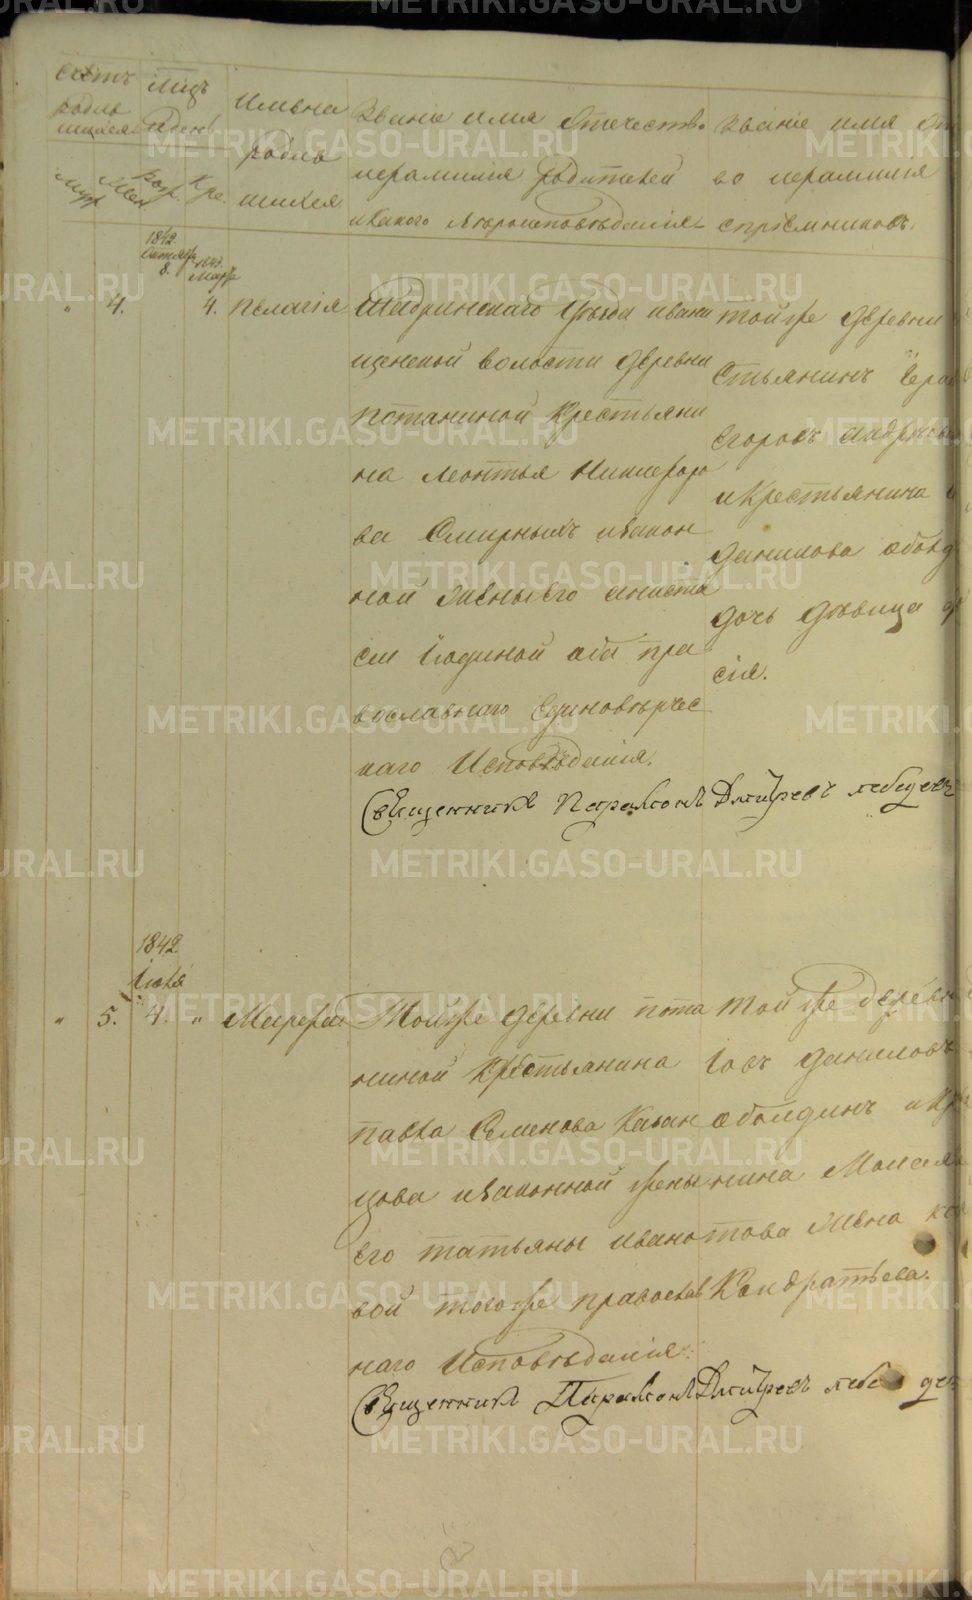 Счетъ
родив
шихся
Мѣцъ
и день
Имена
родив
шихся
Званіе имя Отечество
и фамилія родителей
и какого Вѣроисповѣданія
Званіе имя От
во и фамилія
воспріемниковъ.
Муж Жен рож. Кре.
1842 Октября 8.
1843. Марта
" 4. 4. Пелагія
Шадринскаго Уѣзда Ивани
щенской волости деревни
Потаниной Крестьяни
на Леонтья Никифоро
ва Смирныхъ и закон
ной жены его Анаста
сіи Іодиной оба пра
вославнаго Единовѣрчес
каго Исповѣданія.
Той же деревни
стьянинъ
Егоровъ
и Крестьянина
Данилова
дочь дѣвица
сія.
Священникъ Парамонъ Дмитревъ Лебедевъ
1842
Іюля
" 5. 4. " Марѳа
Той же деревни Пота
ниной Крестьянина
Павла Семенова Казан
цова и законной жены
его Татьяны Ивано
вой того же православ
наго Исповѣданія:
Той же дерев
Іовъ Даниловъ
Оболдинъ и Кре
нина
това жена
Кондратьева.
Священникъ Парамонъ Дмитревъ Лебедев
METRIKI.GASO-URAL.RU